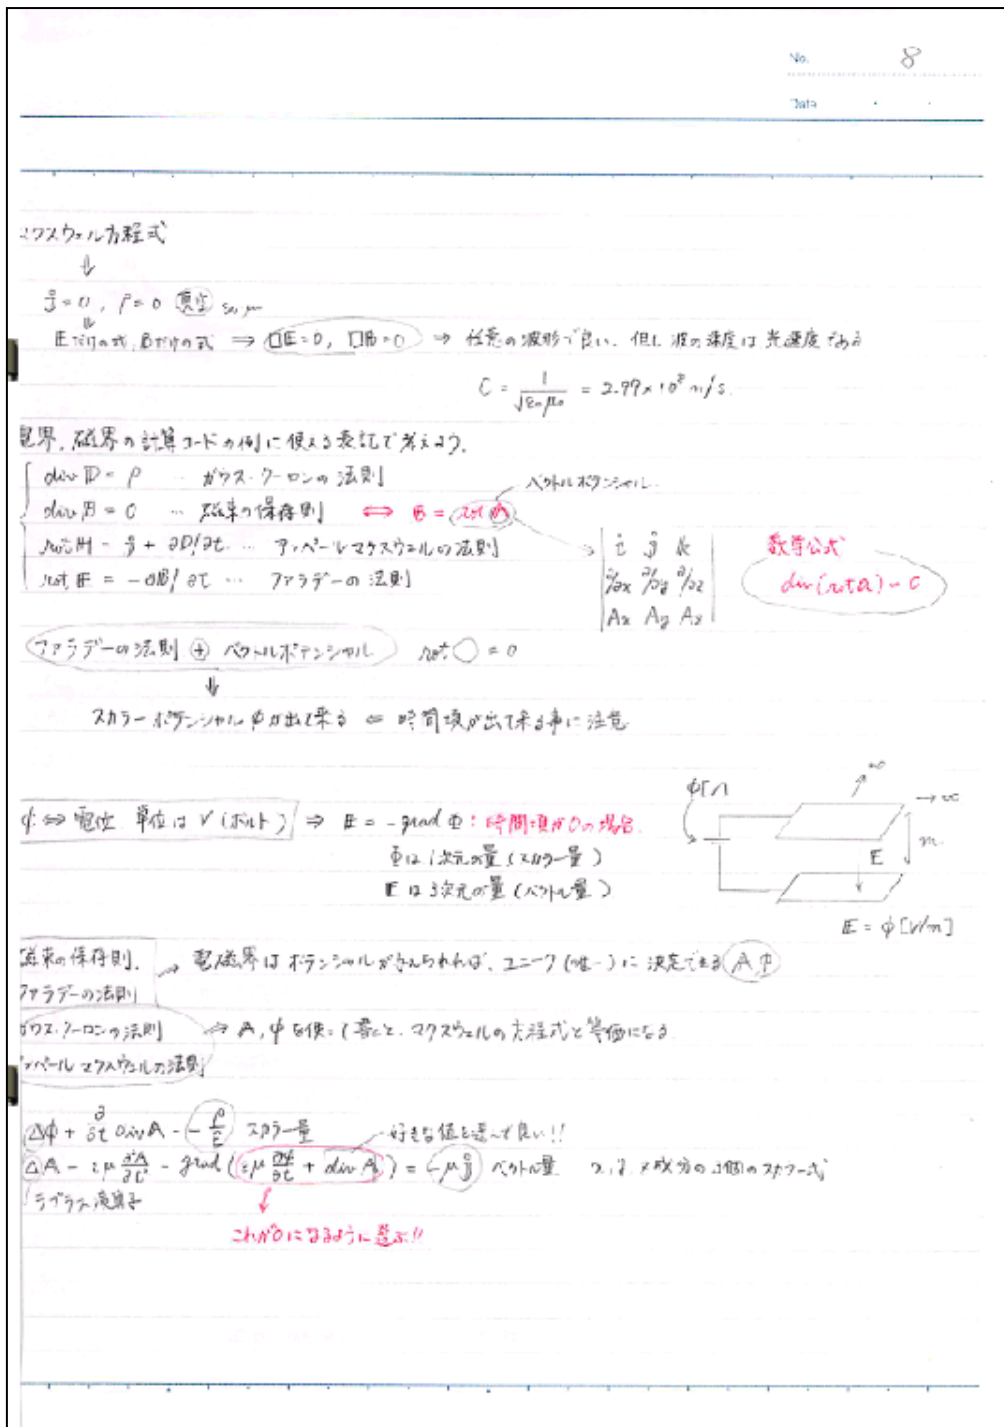 No. 8
Date
マクスウェル方程式
⇓
j = 0, ρ = 0 真空 ε₀, μ₀
⇓
Eだけの式, Bだけの式 ⇒ □E = 0, □B = 0 ⇒ 任意の波形で良い、但し波の速度は光速度である
C = 1/√ε₀μ₀ = 2.99×10⁸ m/s.
電界, 磁界の計算コードの例に使える表記で考えよう.
div D = ρ … ガウス・クーロンの法則
ベクトルポテンシャル
div B = 0 … 磁束の保存則 ⇔ B = rot A
rot H = j + ∂D/∂t … アンペールマクスウェルの法則
rot E = -∂B/∂t … ファラデーの法則
i j k
∂/∂x ∂/∂y ∂/∂z
Ax Ay Az
数学公式
div(rot a) = 0
ファラデーの法則 ⊕ ベクトルポテンシャル rot ○ = 0
⇓
スカラーポテンシャル φ が出て来る ⇐ 時間項が出て来る事に注意
φ ⇔ 電位 単位は V (ボルト) ⇒ E = -grad Φ : 時間項が0の場合.
Φは1次元の量 (スカラー量)
Eは3次元の量 (ベクトル量)
φ[V]
→ ∞
∞
m
E
E = φ [V/m]
磁束の保存則,
ファラデーの法則
→ 電磁界はポテンシャルが与えられれば、ユニーク (唯一) に決定できる A, Φ
ガウス・クーロンの法則
アンペールマクスウェルの法則
⇒ A, φ を使って書くと、マクスウェルの方程式と等価になる
Δφ + ∂/∂t div A = -ρ/ε スカラー量
好きな値を選んで良い!!
ΔA - εμ ∂²A/∂t² - grad (εμ ∂φ/∂t + div A) = -μj ベクトル量
ラプラス演算子
これが0になるように選ぶ!!